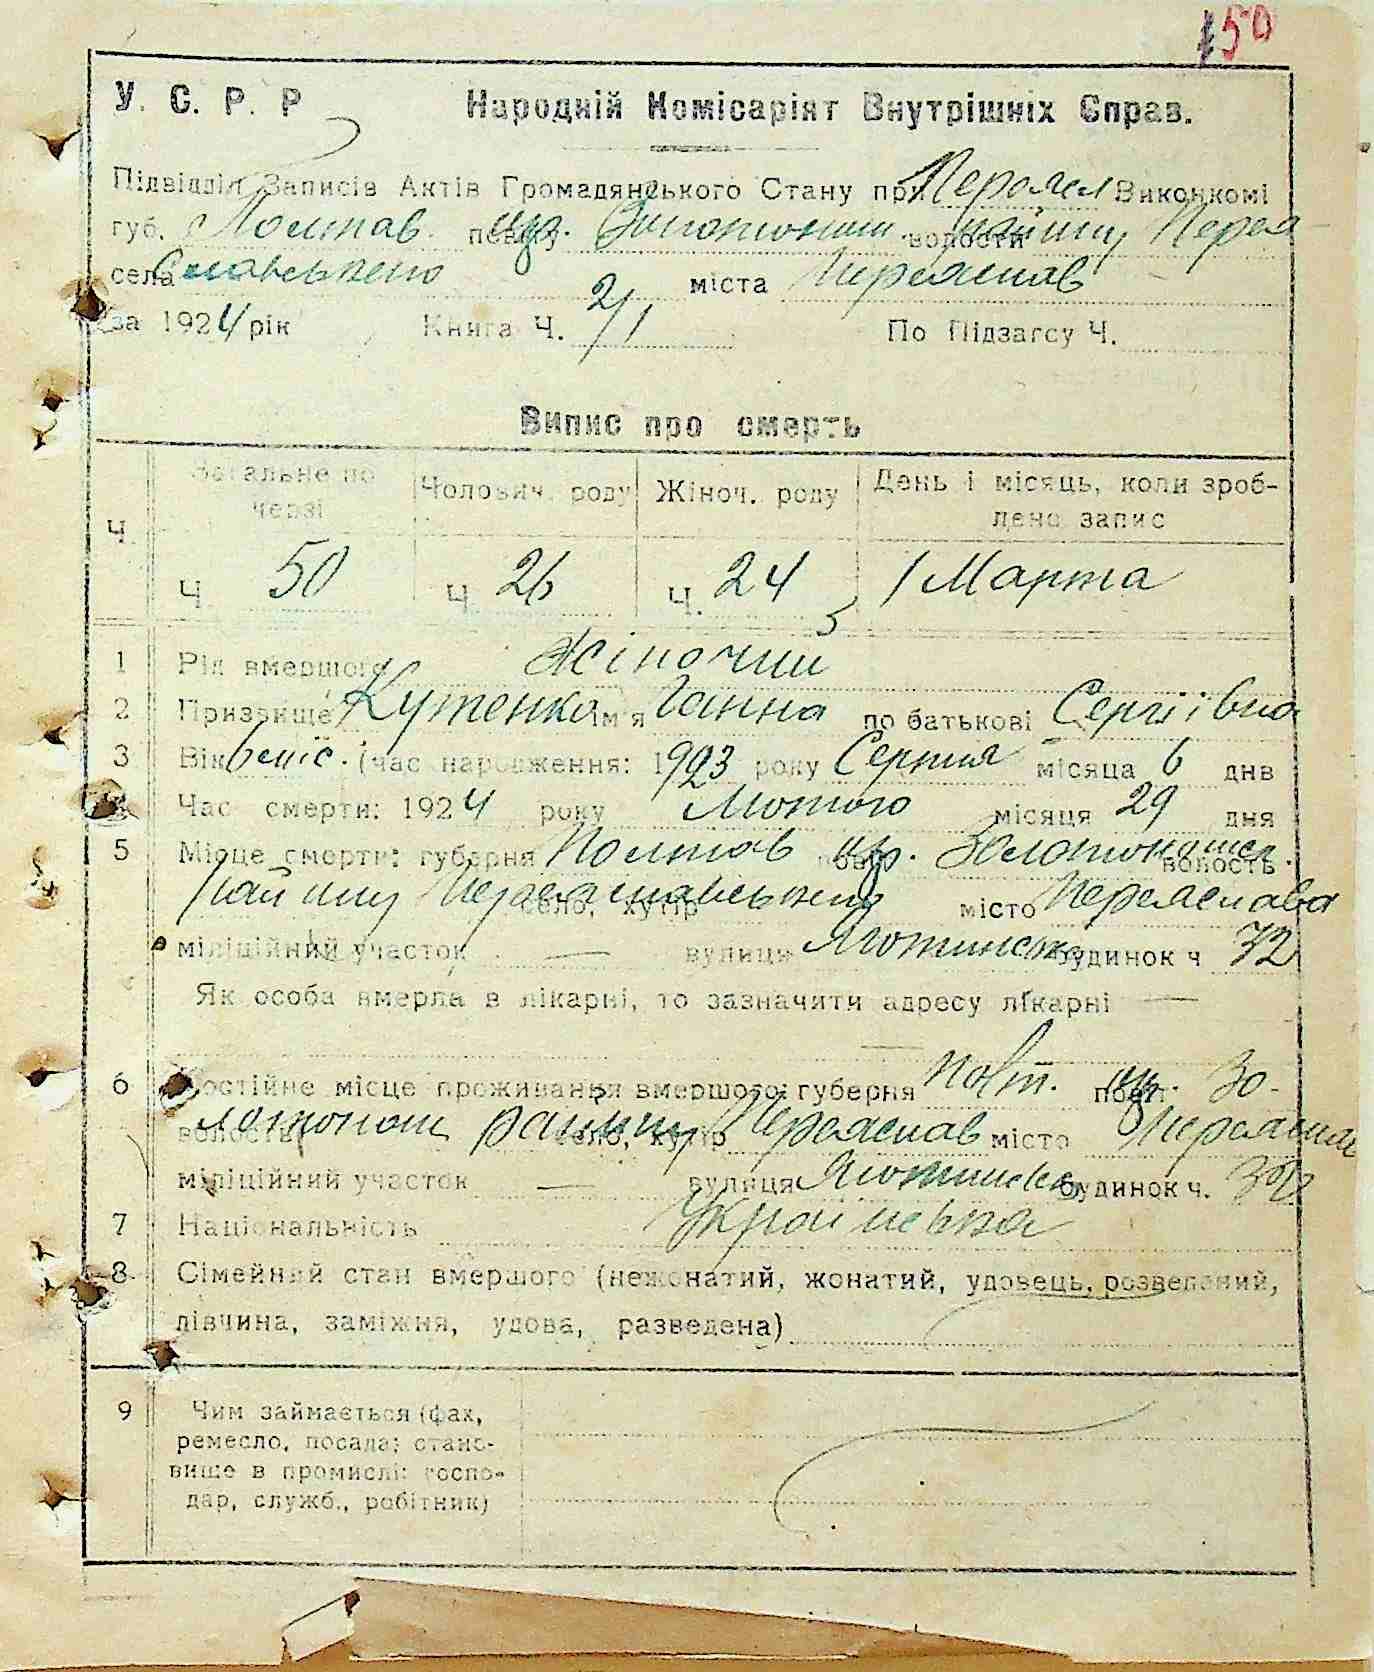 150
У. С. Р. Р Народній Комісаріят Внутрішніх Справ.
Підвідділ Записів Актів Громадянського Стану при Переясл Виконкомі
губ. Полтав. повіту окр. Золотоніш. волости району Перея-
села славського міста Переяслав
за 1924 рік Книга Ч. 2/1 По Підзагсу Ч.
Випис про смерть
Ч. Загальне по черзі Чоловіч. роду Жіноч. роду День і місяць, коли зроб-
лено запис
Ч. 50 Ч. 26 Ч. 24 1 Марта
1 Рід вмершого Жіночий
2 Призвище Кутенко ім'я Ганна по батькові Сергіївна
3 Вік 6 міс. (час народження: 1923 року Серпня місяца 6 днв
Час смерти: 1924 року Лютого місяця 29 дня
5 Місце смерти: губерня Полтав повіт окр. Золотоношськ. волость
району Переяславського село, хутір місто Переяслава
міліційний участок — вулиця Яготинська будинок ч 32
Як особа вмерла в лікарні, то зазначити адресу лікарні —
—
6 Постійне місце проживання вмершого: губерня Полт. повіт окр. Зо-
волость лотонош району село, хутір Переяслав місто Переяслав
міліційний участок — вулиця Яготинськ будинок ч. 32
7 Національність Українська
8 Сімейний стан вмершого (нежонатий, жонатий, удовець, розведений,
дівчина, заміжня, удова, разведена)
9 Чим займається (фах,
ремесло, посада; стано-
вище в промислі: госпо-
дар, служб., робітник)